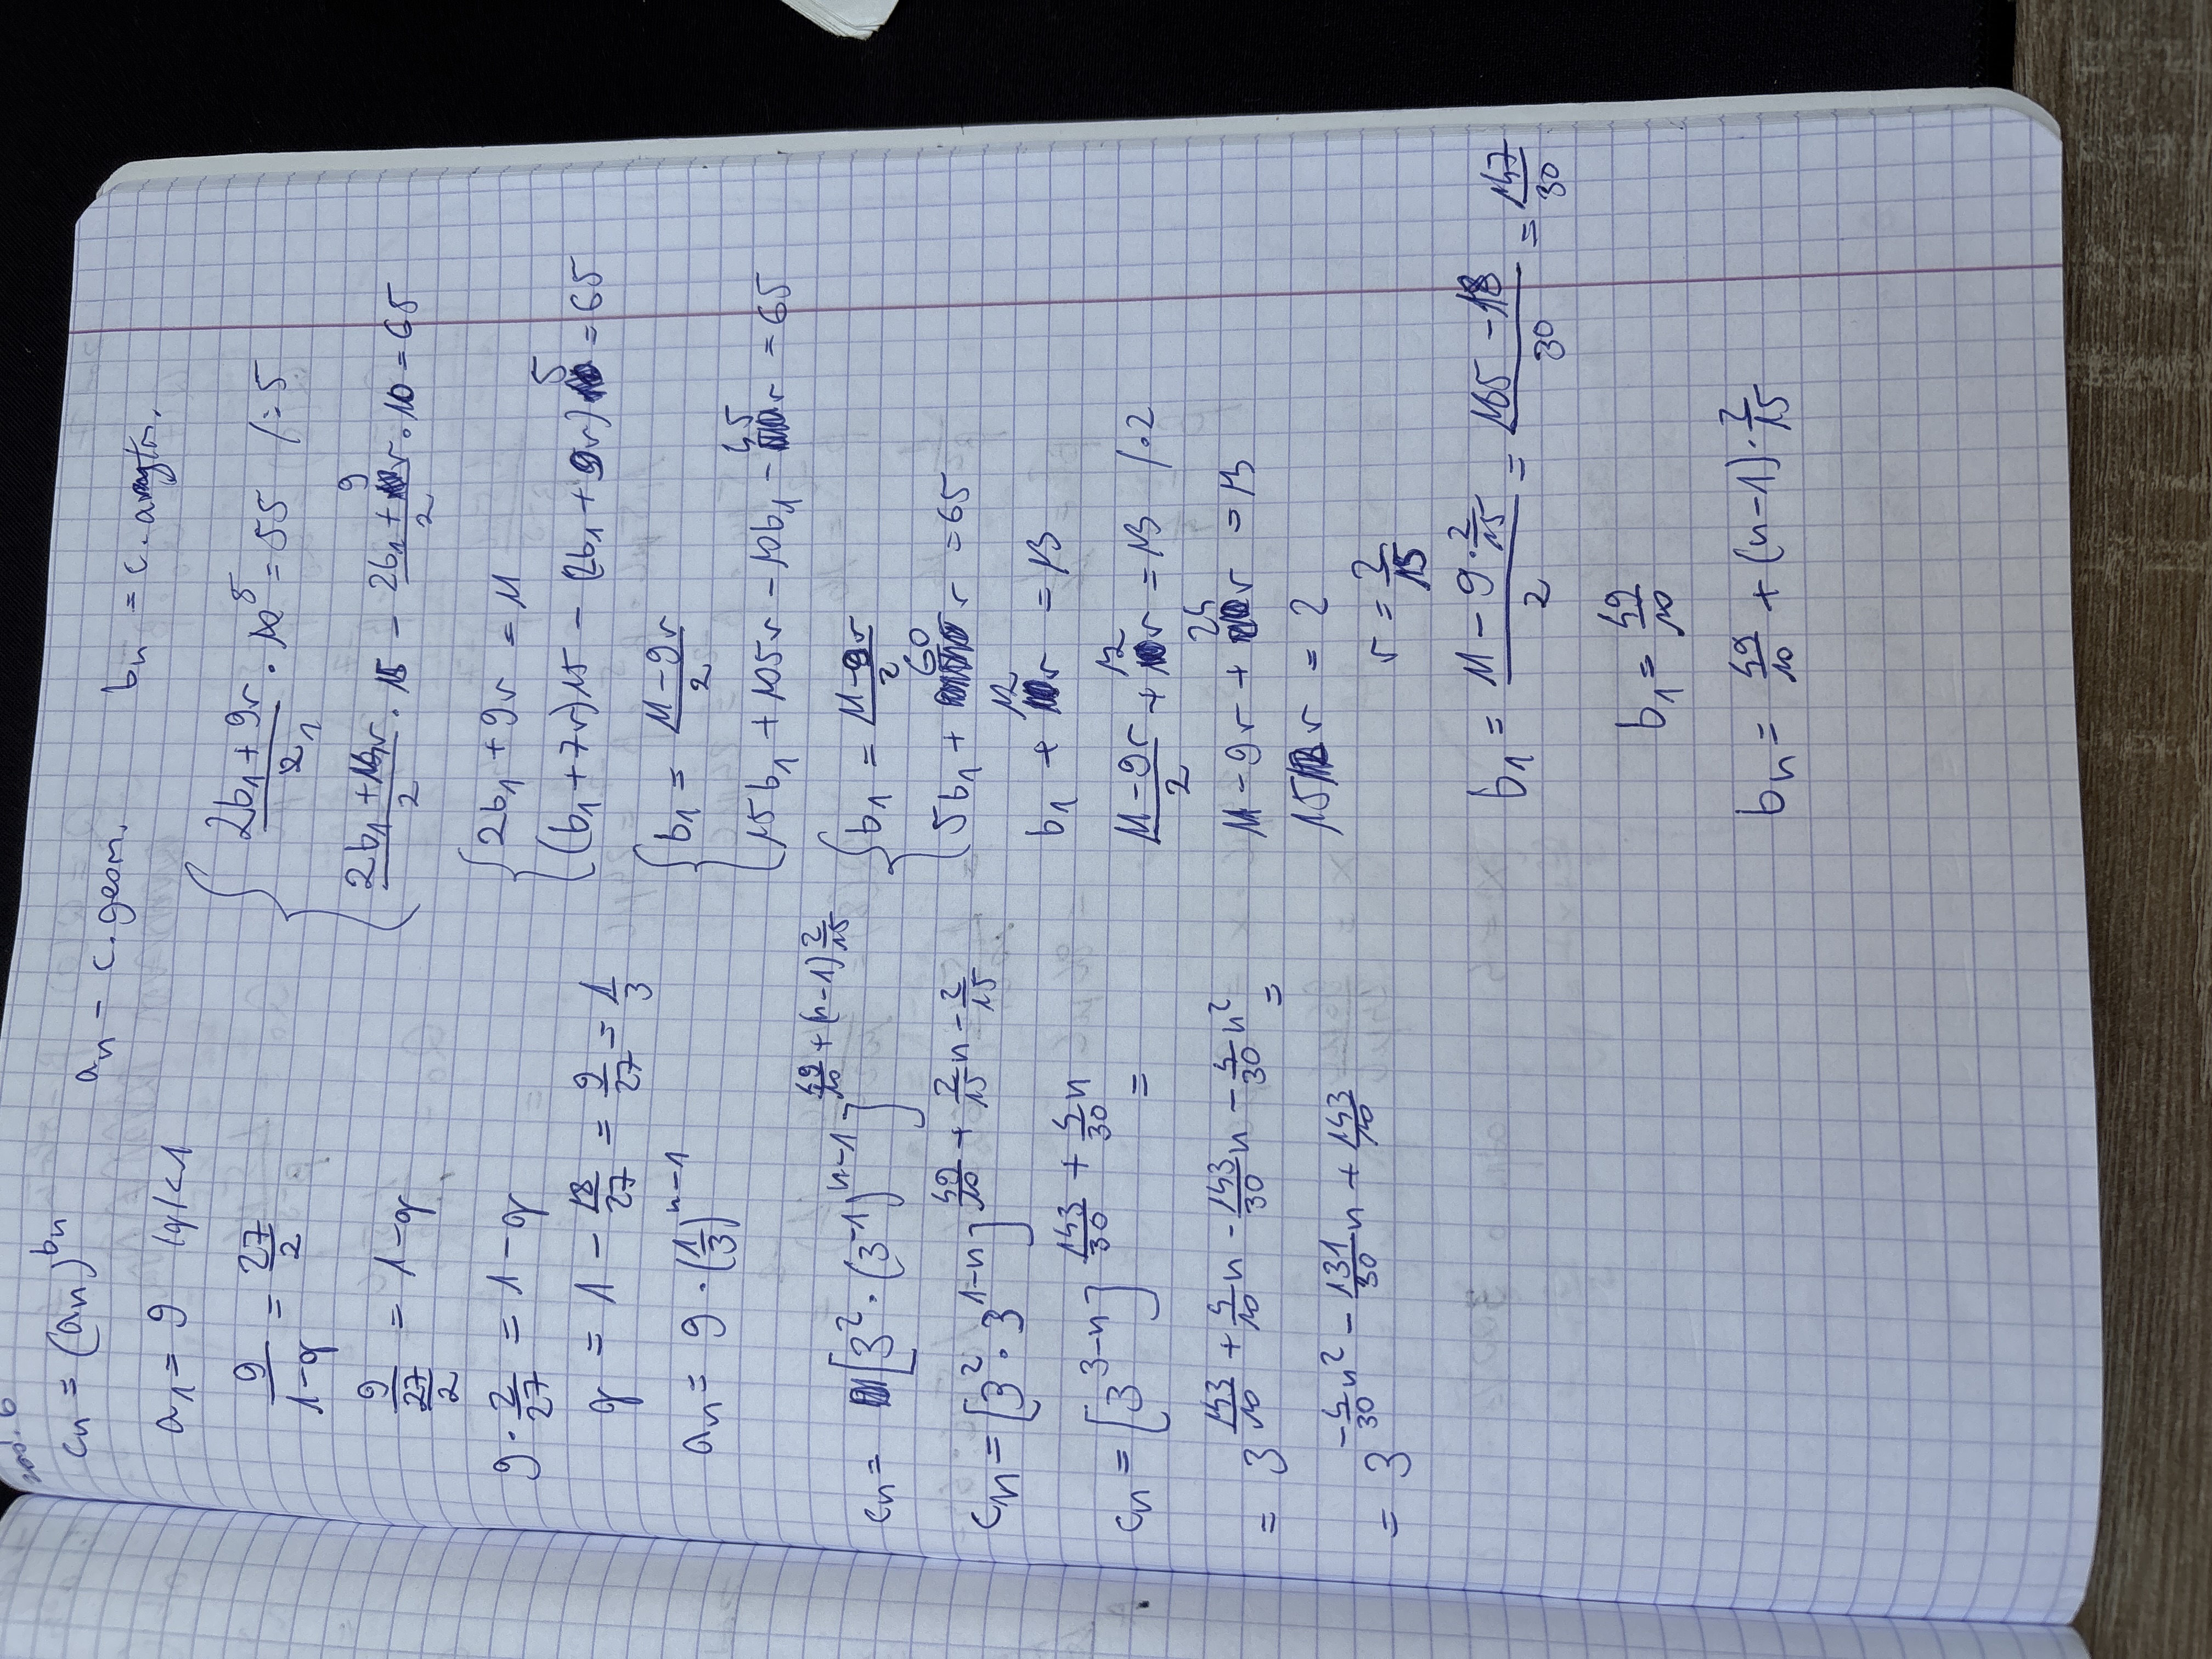 zad. 6
cn = (an)^bn
an - c. geom.
bn = c. arytm.
a1 = 9 |q|<1
9/(1-q) = 27/2
9/(27/2) = 1-q
9 · 2/27 = 1-q
q = 1 - 18/27 = 9/27 = 1/3
an = 9 · (1/3)^(n-1)
cn = [3^2 · (3^-1)^(n-1)]^(49/10 + (n-1) 2/15)
cn = [3^2 · 3^(1-n)]^(49/10 + 2/15 n - 2/15)
cn = [3^(3-n)]^(143/30 + 4/30 n) =
= 3^(143/10 + 4/10 n - 143/30 n - 4/30 n^2) =
= 3^(-4/30 n^2 - 131/30 n + 143/10)
{ (2b1 + 9r)/2 · 10 = 55 /:5
(2b1 + 14r)/2 · 15 - (2b1 + 9r)/2 · 10 = 65
{ 2b1 + 9r = 11
(b1 + 7r)15 - (2b1 + 9r)5 = 65
{ b1 = (11 - 9r)/2
15b1 + 105r - 10b1 - 45r = 65
{ b1 = (11 - 9r)/2
5b1 + 60r = 65
b1 + 12r = 13
(11 - 9r)/2 + 12r = 13 /·2
11 - 9r + 24r = 13
15r = 2
r = 2/15
b1 = (11 - 9 · 2/15)/2 = (165 - 18)/30 = 147/30
b1 = 49/10
bn = 49/10 + (n-1) · 2/15